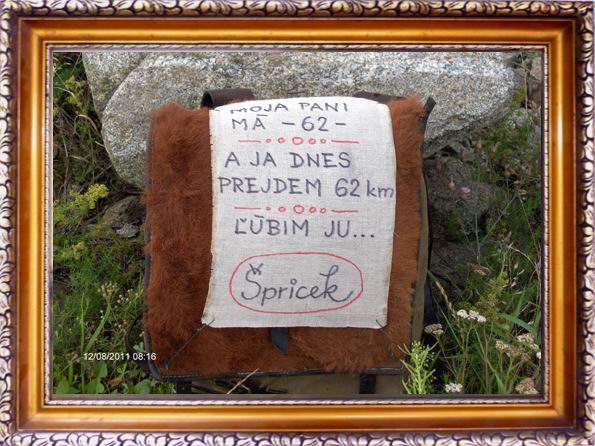 MOJA PANI
MÁ -62-
A JA DNES
PREJDEM 62 km
ĽÚBIM JU...
Špricek
12/08/2011 08:16